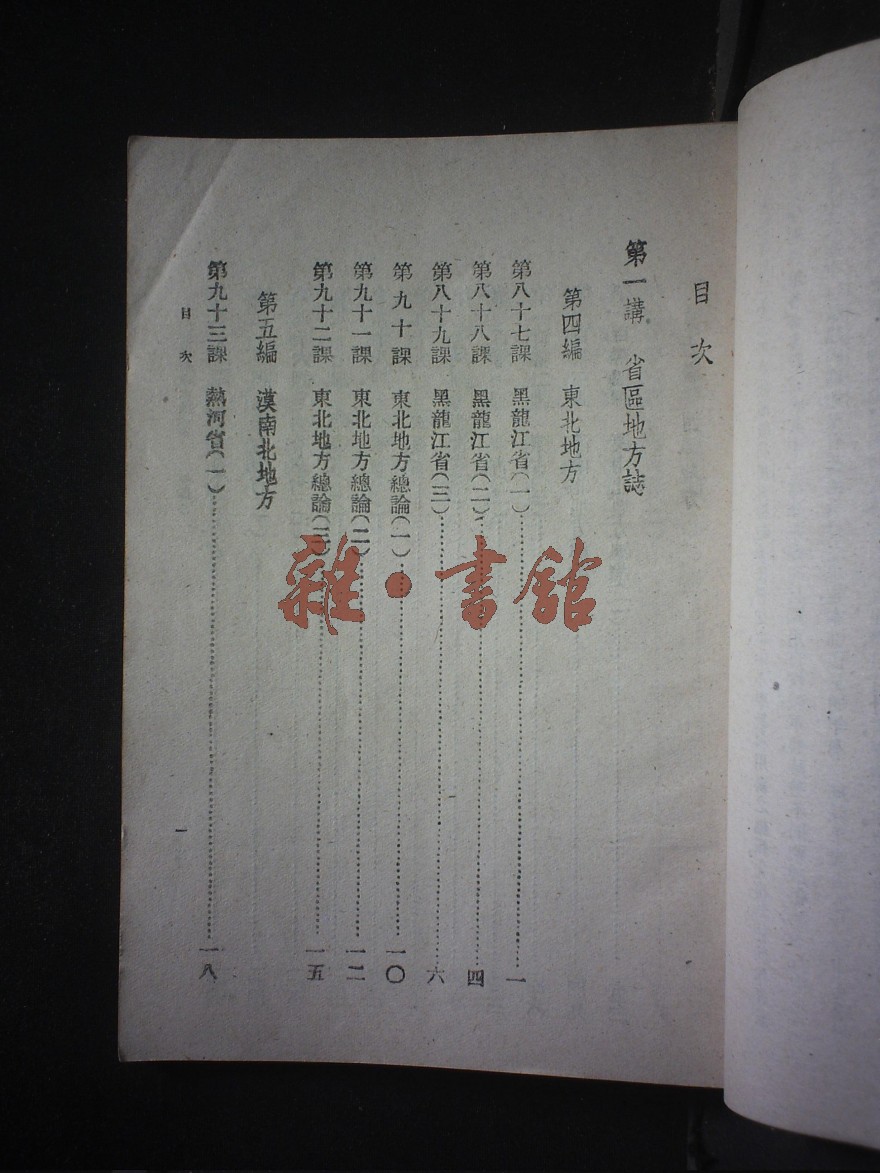 目次
第一講 省區地方誌
第四編 東北地方
第八十七課 黑龍江省(一)……一
第八十八課 黑龍江省(二)……四
第八十九課 黑龍江省(三)……六
第九十課 東北地方總論(一)……一〇
第九十一課 東北地方總論(二)……一二
第九十二課 東北地方總論(三)……一五
第五編 漠南北地方
第九十三課 熱河省(一)……一八
目次 一
雜·書館